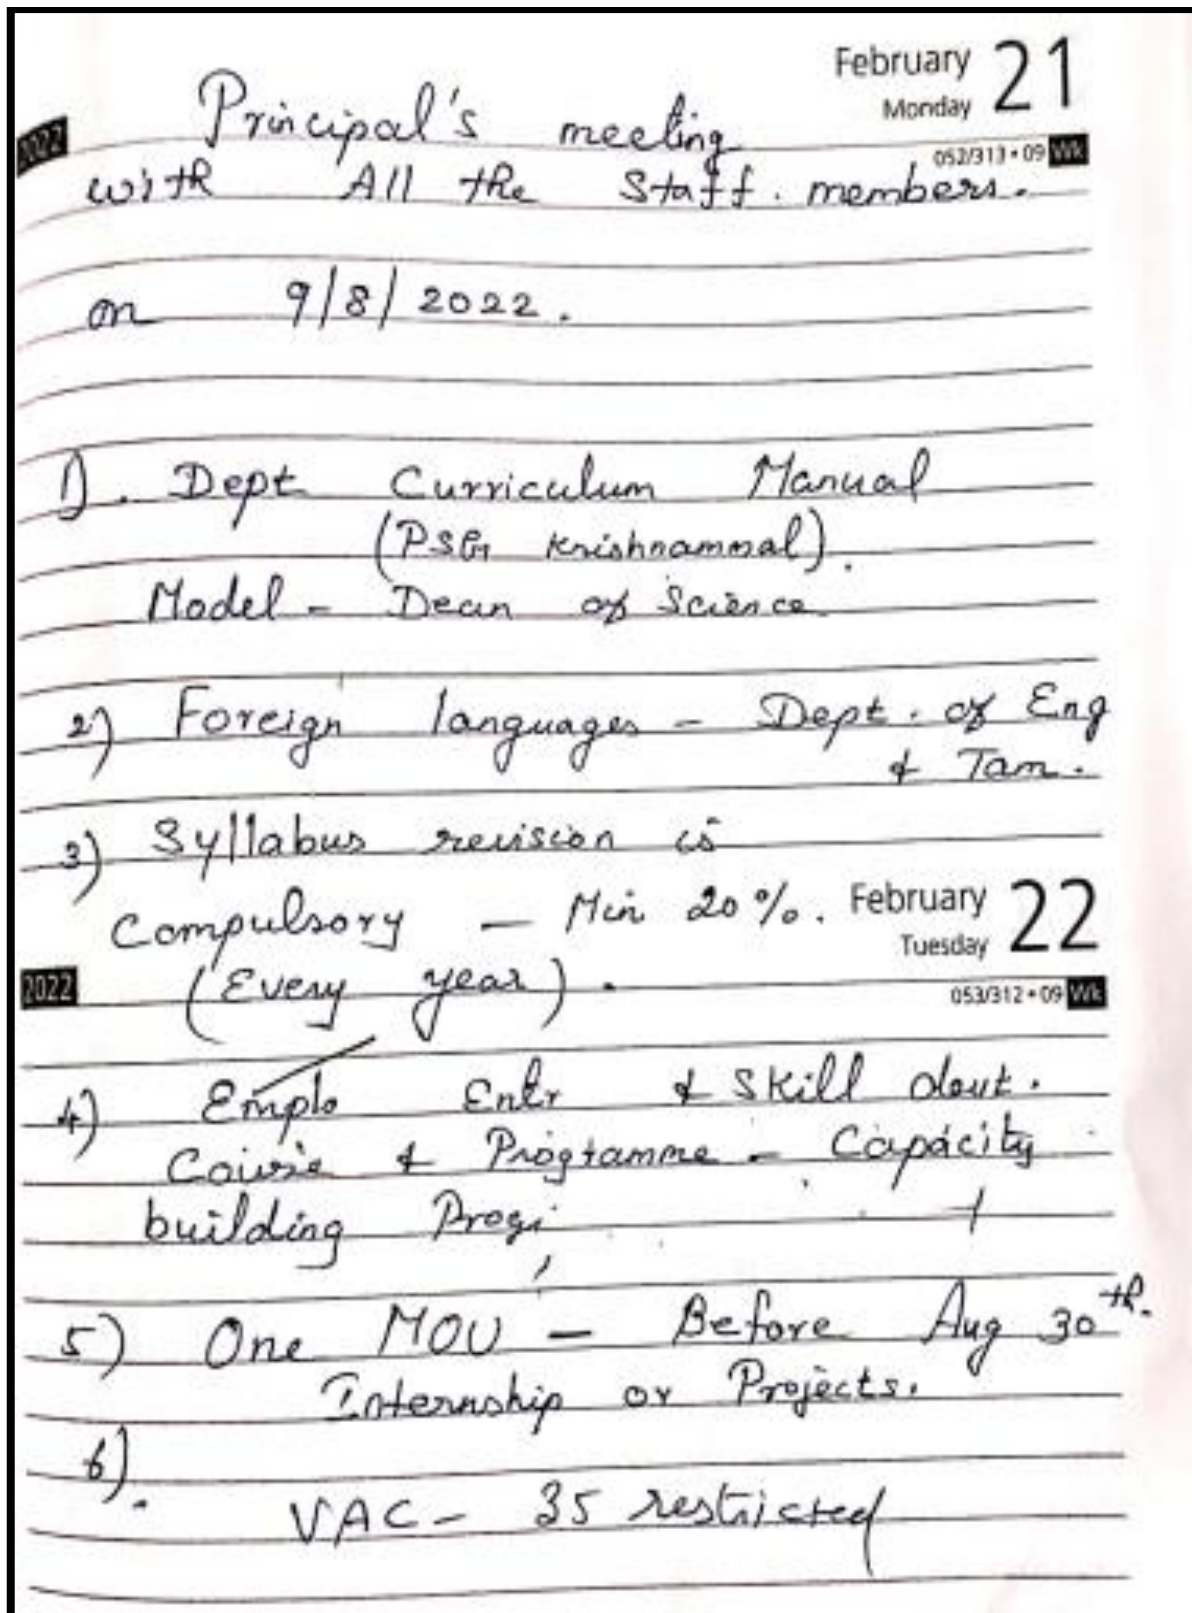 February 21
Monday
2022
052/313 • 09 Wk
Principal's meeting
with All the Staff. members.
on 9/8/2022.
1). Dept Curriculum Manual
(PSG Krishnammal).
Model - Dean of Science
2) Foreign languages - Dept. of Eng
& Tam.
3) Syllabus revision is
Compulsory - Min 20%.
February 22
Tuesday
2022
053/312 • 09 Wk
(Every year).
4) Emplo Entr & Skill
Course & Programme - Capacity
building Progr
5) One MOU - Before Aug 30th.
Internship or Projects.
6).
VAC - 35 restricted